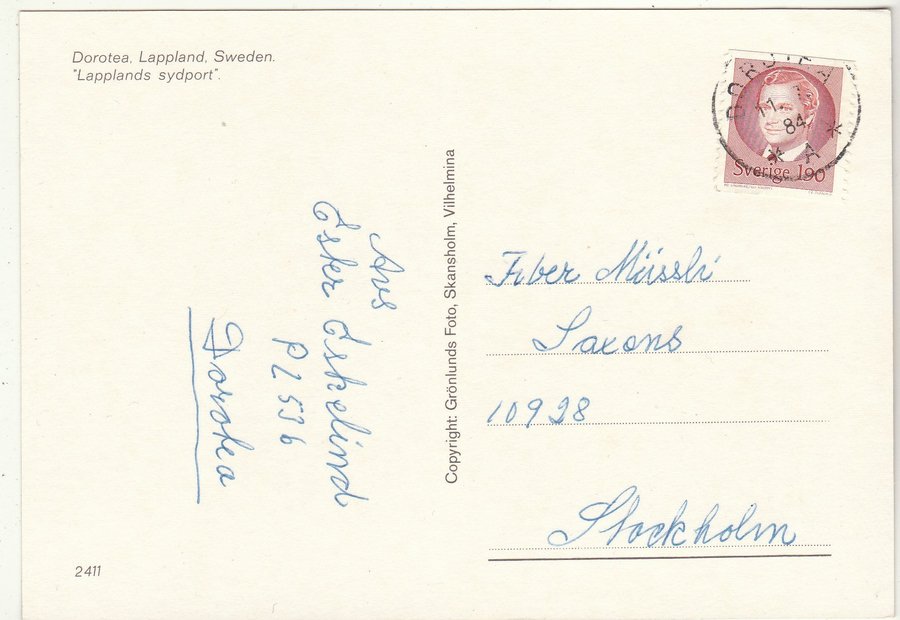 Dorotea, Lappland, Sweden.
"Lapplands sydport".
DOROTEA
11.
84
* A *
Sverige 190
Avs
Oskr Eskelind
PL 536
Dorotea
Copyright: Grönlunds Foto, Skansholm, Vilhelmina
Fiber Müssli
Saxons
10928
Stockholm
2411